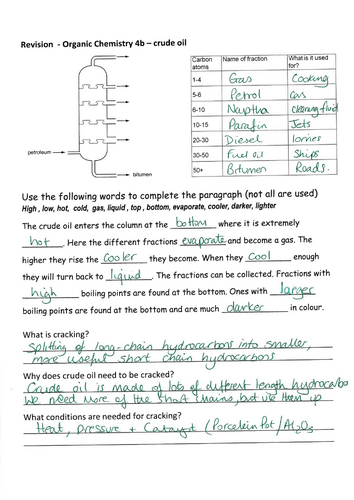 Revision - Organic Chemistry 4b – crude oil
Carbon atoms | Name of fraction | What is it used for?
1-4 | Gas | Cooking
5-6 | Petrol | Gas
6-10 | Naptha | cleaning fluid
10-15 | Parafin | Jets
20-30 | Diesel | lorries
30-50 | Fuel oil | Ships
50+ | Bitumen | Roads.
petroleum
bitumen
Use the following words to complete the paragraph (not all are used)
High , low, hot, cold, gas, liquid , top , bottom, evaporate, cooler, darker, lighter
The crude oil enters the column at the bottom where it is extremely
hot. Here the different fractions evaporate and become a gas. The
higher they rise the Cooler they become. When they Cool enough
they will turn back to liquid. The fractions can be collected. Fractions with
high boiling points are found at the bottom. Ones with larger
boiling points are found at the bottom and are much darker in colour.
What is cracking?
Splitting of long-chain hydrocarbons into smaller,
more useful short chain hydrocarbons
Why does crude oil need to be cracked?
Crude oil is made of lots of different length hydrocarbo
We need more of the short chains, but use them up
What conditions are needed for cracking?
Heat, pressure + Catalyst (Porcelein Pot/Al2O3